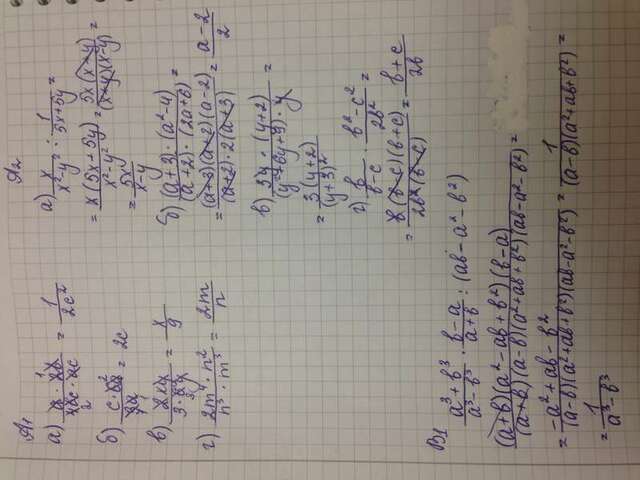 А1
а) a · 2b / 4bc · ac = 1 / 2c²
б) c · 6a / 3a = 2c
в) 2xy / 3 · 6y = x / 9
г) 2m⁴ · n² / n³ · m³ = 2m / n
А2
а) x / x²-y² : 1 / 5x+5y =
= x(5x+5y) / x²-y² = 5x(x+y) / (x+y)(x-y) =
= 5x / x-y
б) (a+3) · (a²-4) / (a+2) · (2a+6) =
= (a+3)(a+2)(a-2) / (a+2) · 2(a+3) = a-2 / 2
в) 3y · (y+2) / (y²+6y+9) · y =
= 3(y+2) / (y+3)²
г) b / b-c · b²-c² / 2b² =
= b(b-c)(b+c) / 2b²(b-c) = b+c / 2b
В1
a³+b³ / a³-b³ · b-a / a+b : (ab-a²-b²)
(a+b)(a²-ab+b²)(b-a) / (a+b)(a-b)(a²+ab+b²)(ab-a²-b²) =
= -a²+ab-b² / (a-b)(a²+ab+b²)(ab-a²-b²) = 1 / (a-b)(a²+ab+b²) =
= 1 / a³-b³